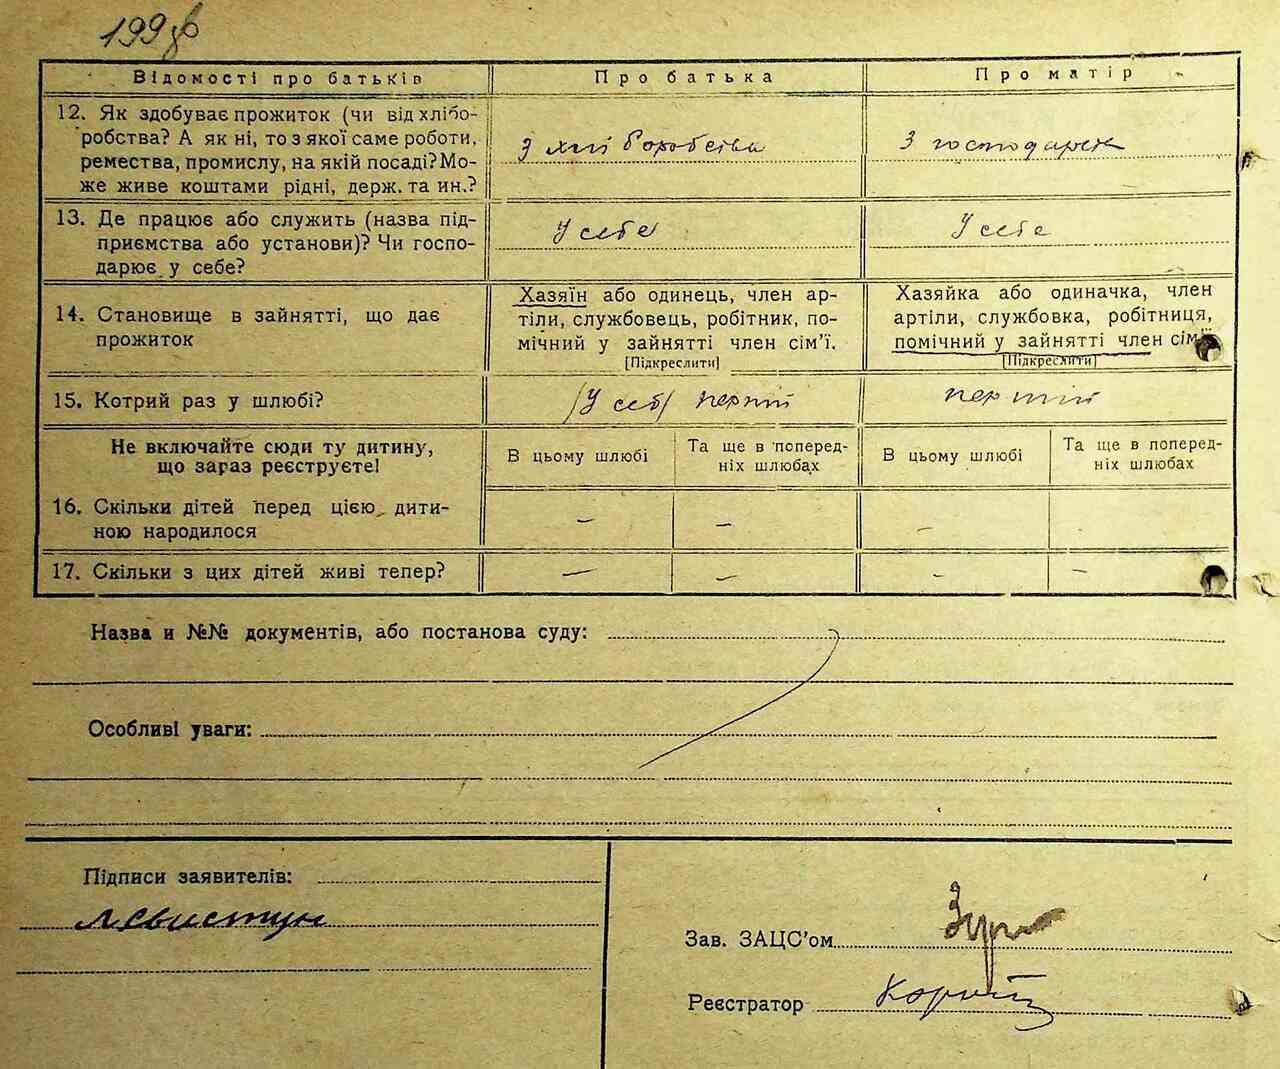 199 зв
Відомості про батьків
Про батька
Про матір
12. Як здобуває прожиток (чи від хлібо-
робства? А як ні, то з якої саме роботи,
ремества, промислу, на якій посаді? Мо-
же живе коштами рідні, держ. та ин.?
З хліборобства
З господарки
13. Де працює або служить (назва під-
приємства або установи)? Чи госпо-
дарює у себе?
У себе
У себе
14. Становище в зайнятті, що дає
прожиток
Хазяїн або одинець, член ар-
тіли, службовець, робітник, по-
мічний у зайнятті член сім'ї.
[Підкреслити]
Хазяйка або одиначка, член
артіли, службовка, робітниця,
помічний у зайнятті член сім'ї
[Підкреслити]
15. Котрий раз у шлюбі?
/У себ/ перший
перший
Не включайте сюди ту дитину,
що зараз реєструєте!
В цьому шлюбі
Та ще в поперед-
ніх шлюбах
В цьому шлюбі
Та ще в поперед-
ніх шлюбах
16. Скільки дітей перед цією дити-
ною народилося
–
–
–
17. Скільки з цих дітей живі тепер?
–
–
–
–
Назва и №№ документів, або постанова суду:
Особливі уваги:
Підписи заявителів:
Свистун
Зав. ЗАЦС'ом
Реєстратор